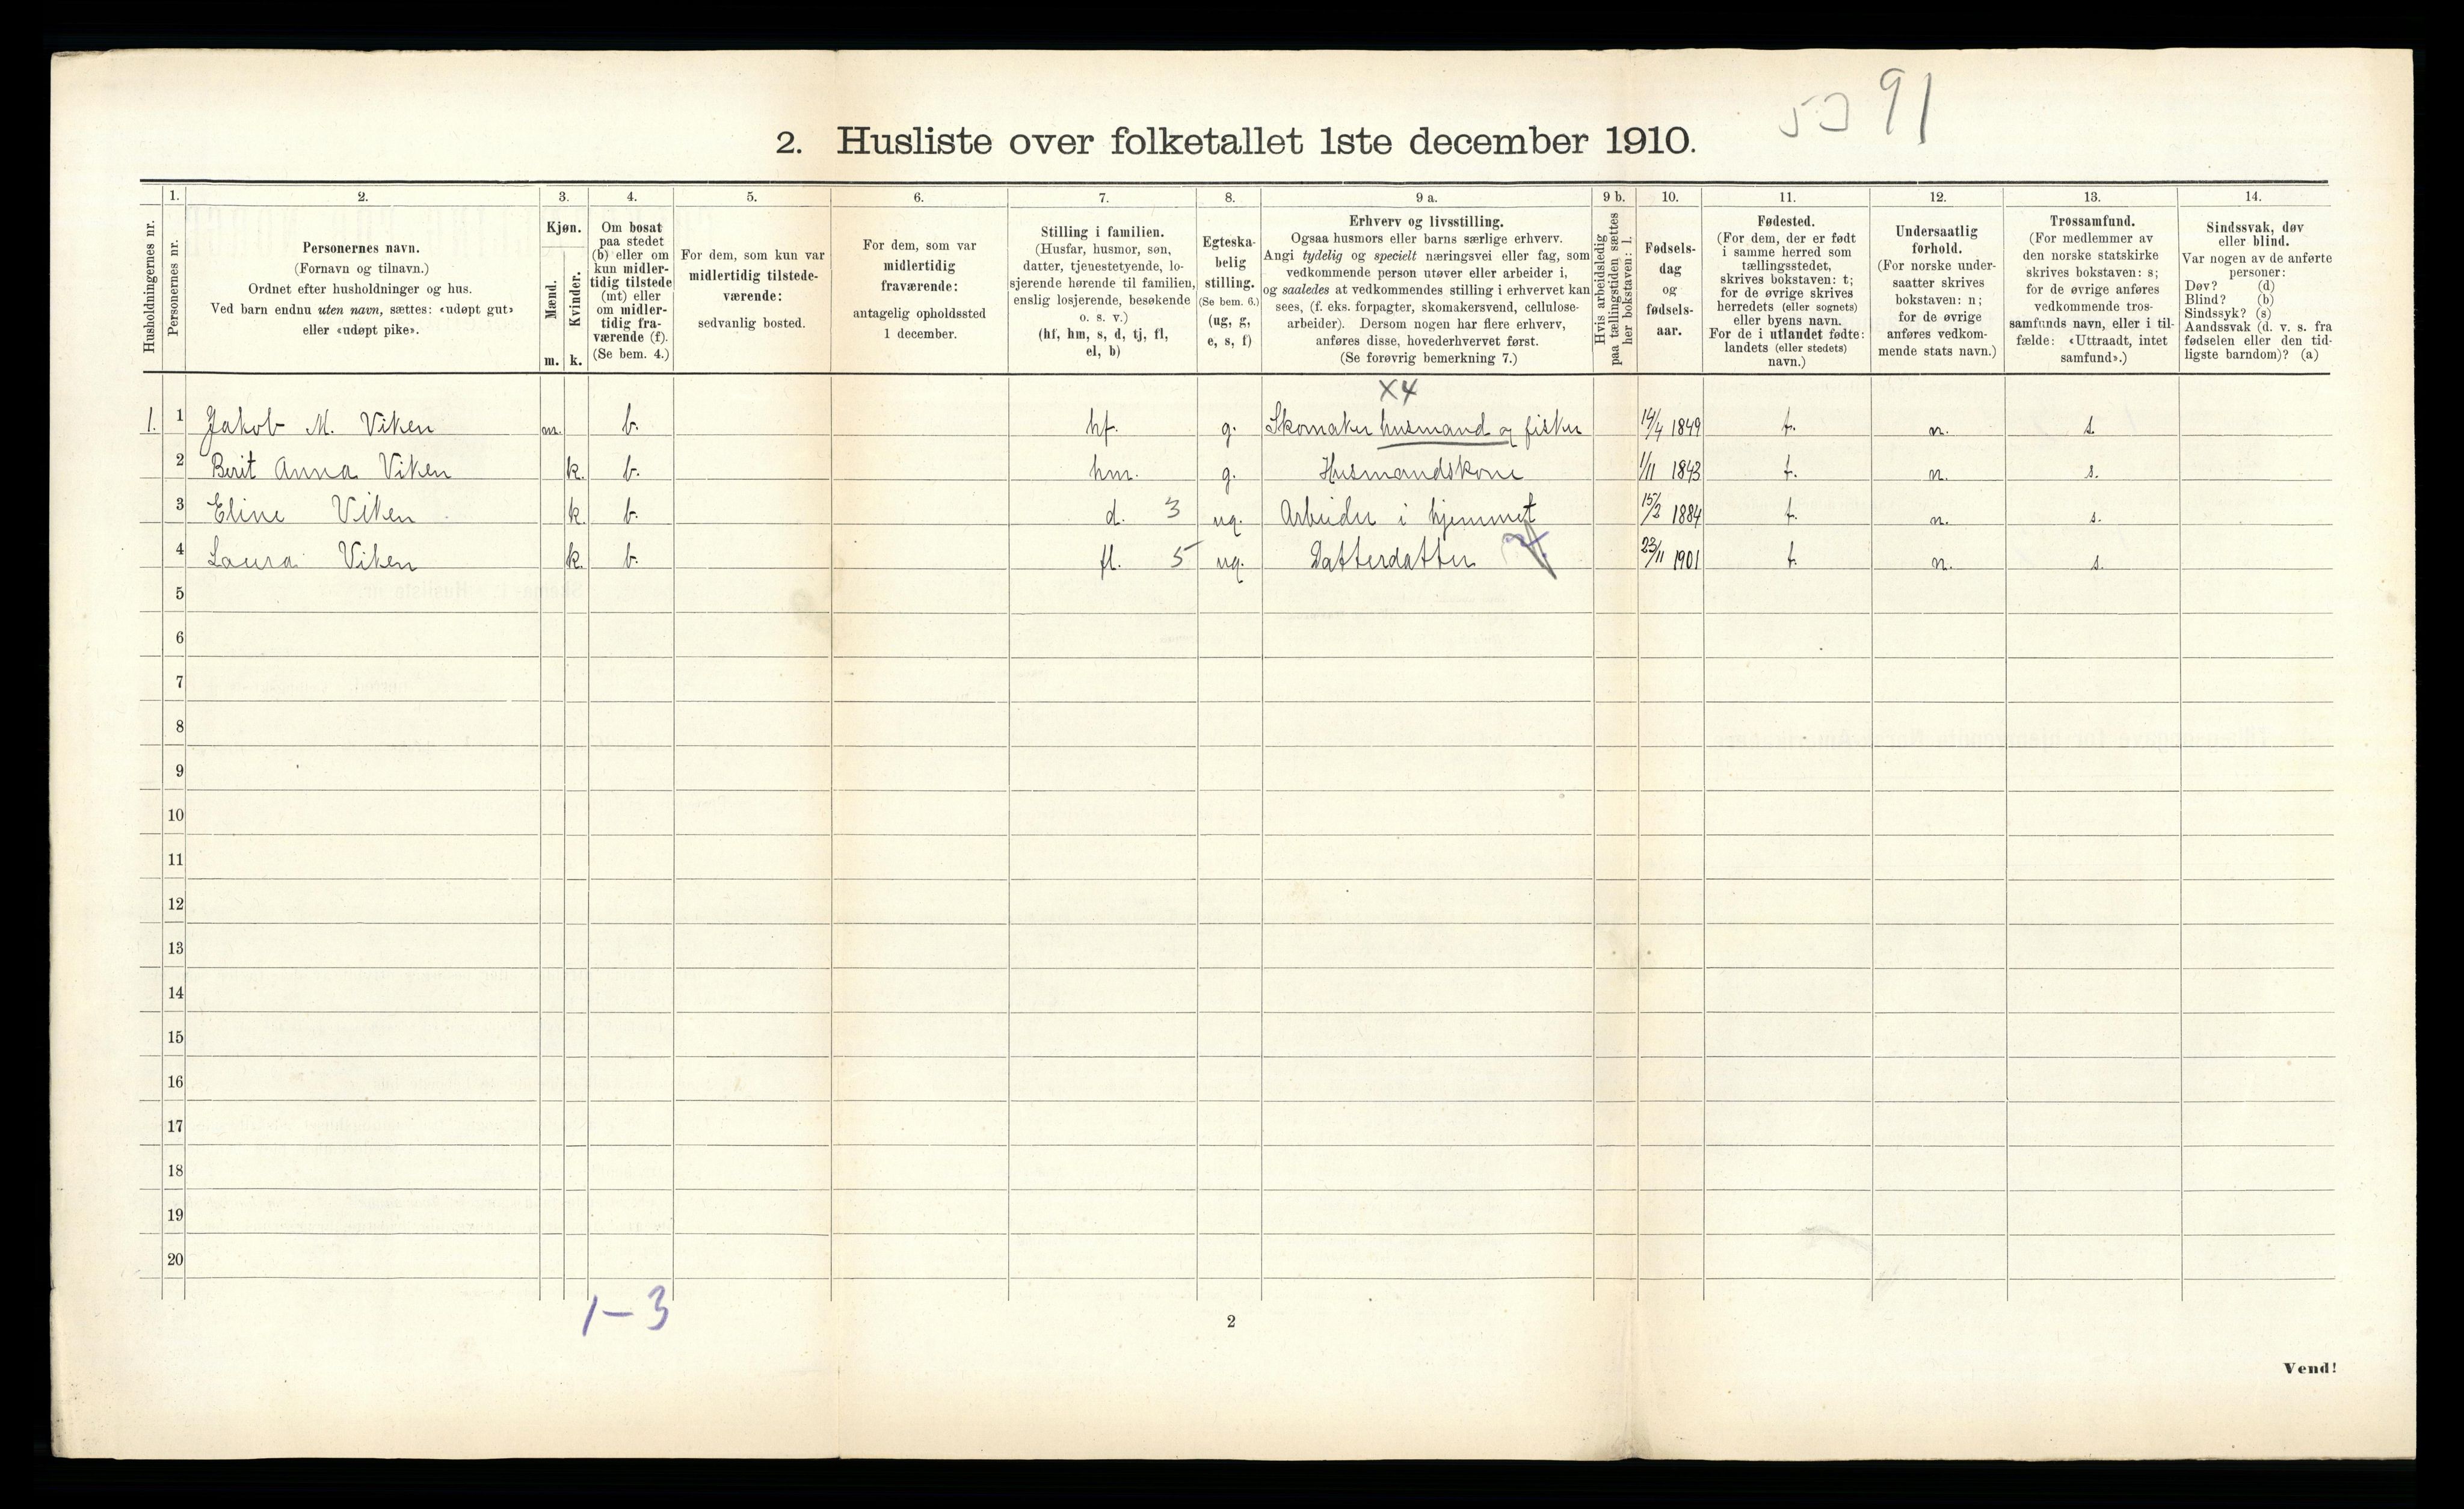 5391
2. Husliste over folketallet 1ste december 1910.
Husholdningernes nr.
1.
Personernes nr.
2.
Personernes navn.
(Fornavn og tilnavn.)
Ordnet efter husholdninger og hus.
Ved barn endnu uten navn, sættes: «udøpt gut»
eller «udøpt pike».
3.
Kjøn.
Mænd.
m.
Kvinder.
k.
4.
Om bosat
paa stedet
(b) eller om
kun midler-
tidig tilstede
(mt) eller
om midler-
tidig fra-
værende (f).
(Se bem. 4.)
5.
For dem, som kun var
midlertidig tilstede-
værende:
sedvanlig bosted.
6.
For dem, som var
midlertidig
fraværende:
antagelig opholdssted
1 december.
7.
Stilling i familien.
(Husfar, husmor, søn,
datter, tjenestetyende, lo-
sjerende hørende til familien,
enslig losjerende, besøkende
o. s. v.)
(hf, hm, s, d, tj, fl,
el, b)
8.
Egteska-
belig
stilling.
(Se bem. 6.)
(ug, g,
e, s, f)
9 a.
Erhverv og livsstilling.
Ogsaa husmors eller barns særlige erhverv.
Angi tydelig og specielt næringsvei eller fag, som
vedkommende person utøver eller arbeider i,
og saaledes at vedkommendes stilling i erhvervet kan
sees, (f. eks. forpagter, skomakersvend, cellulose-
arbeider). Dersom nogen har flere erhverv,
anføres disse, hovederhvervet først.
(Se forøvrig bemerkning 7.)
9 b.
Hvis arbeidsledig
paa tællingstiden sættes
her bokstaven: l.
10.
Fødsels-
dag
og
fødsels-
aar.
11.
Fødested.
(For dem, der er født
i samme herred som
tællingsstedet,
skrives bokstaven: t;
for de øvrige skrives
herredets (eller sognets)
eller byens navn.
For de i utlandet fødte:
landets (eller stedets)
navn.)
12.
Undersaatlig
forhold.
(For norske under-
saatter skrives
bokstaven: n;
for de øvrige
anføres vedkom-
mende stats navn.)
13.
Trossamfund.
(For medlemmer av
den norske statskirke
skrives bokstaven: s;
for de øvrige anføres
vedkommende tros-
samfunds navn, eller i til-
fælde: «Uttraadt, intet
samfund».)
14.
Sindssvak, døv
eller blind.
Var nogen av de anførte
personer:
Døv? (d)
Blind? (b)
Sindssyk? (s)
Aandssvak (d. v. s. fra
fødselen eller den tid-
ligste barndom)? (a)
X4
1. 1 Jakob M. Viken m. b. hf. g. Skomaker husmand og fisker 14/4 1849 t. n. s.
2 Berit Anna Viken k. b. hm. g. Husmandskone 1/11 1843 t. n. s.
3 Eline Viken k. b. d. 3 ug. Arbeider i hjemmet 15/3 1884 t. n. s.
4 Laura Viken k. b. fl. 5 ug. Datterdatter 23/11 1901 t. n. s.
5
6
7
8
9
10
11
12
13
14
15
16
17
18
19
20
1-3
2
Vend!